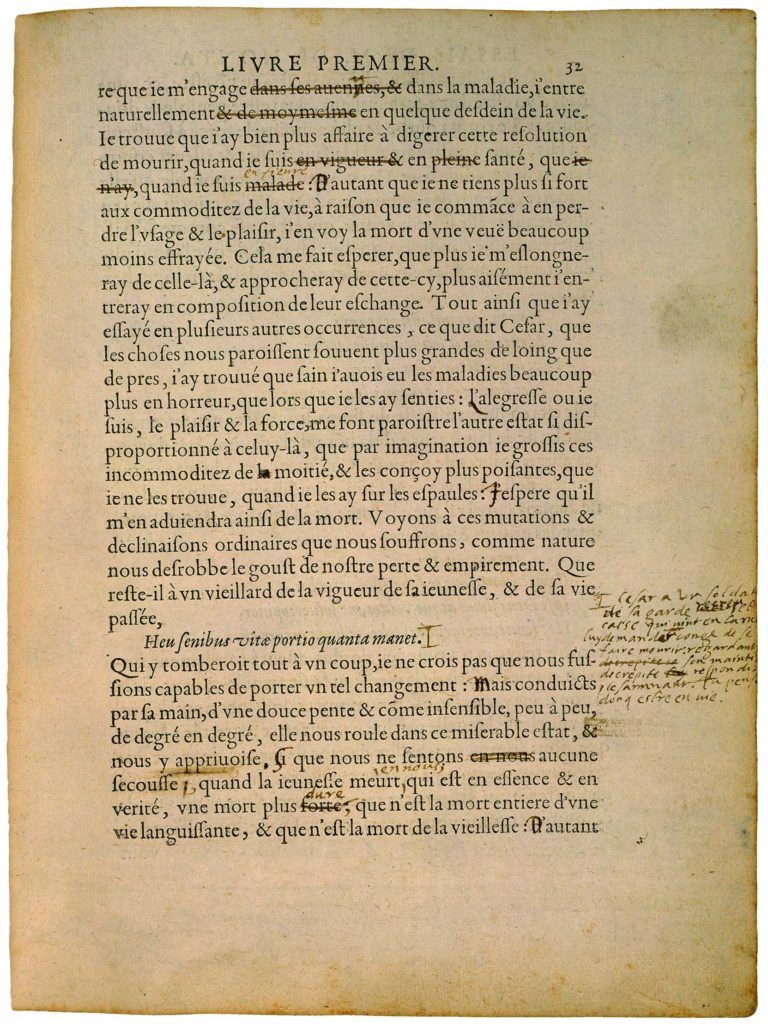 LIVRE PREMIER. 32
re que ie m'engage dans ses auenues, & dans la maladie, i'entre
naturellement & de moymesme en quelque desdein de la vie.
Ie trouue que i'ay bien plus affaire à digerer cette resolution
de mourir, quand ie suis en vigueur & en pleine santé, que ie
en fieure
n'ay, quand ie suis malade: D'autant que ie ne tiens plus si fort
aux commoditez de la vie, à raison que ie commãce à en per-
dre l'vsage & le plaisir, i'en voy la mort d'vne veuë beaucoup
moins effrayée. Cela me fait esperer, que plus ie m'eslongne-
ray de celle-là, & approcheray de cette-cy, plus aisément i'en-
treray en composition de leur eschange. Tout ainsi que i'ay
essayé en plusieurs autres occurrences, ce que dit Cesar, que
les choses nous paroissent souuent plus grandes de loing que
de pres, i'ay trouué que sain i'auois eu les maladies beaucoup
plus en horreur, que lors que ie les ay senties: L'alegresse ou ie
suis, le plaisir & la force, me font paroistre l'autre estat si dis-
proportionné à celuy-là, que par imagination ie grossis ces
incommoditez de la moitié, & les conçoy plus poisantes, que
ie ne les trouue, quand ie les ay sur les espaules: I'espere qu'il
m'en aduiendra ainsi de la mort. Voyons à ces mutations &
declinaisons ordinaires que nous souffrons, comme nature
nous desrobbe le goust de nostre perte & empirement. Que
reste-il à vn vieillard de la vigueur de sa ieunesse, & de sa vie
passée,
Heu senibus vitæ portio quanta manet.
Cesar a un soldat
de sa garde
casse qui vint en la rue
luy demander congé de se
faire mourir: regardant
son maintien
decrepite respondit
Tu penses
donq estre en vie.
Qui y tomberoit tout à vn coup, ie ne crois pas que nous fus-
sions capables de porter vn tel changement: Mais conduicts
par sa main, d'vne douce pente & cõme insensible, peu à peu,
de degré en degré, elle nous roule dans ce miserable estat, &
nous y appriuoise, si que nous ne sentons en nous aucune
en nous,
secousse, quand la ieunesse meurt, qui est en essence & en
dure
verité, vne mort plus forte, que n'est la mort entiere d'vne
vie languissante, & que n'est la mort de la vieillesse: D'autant